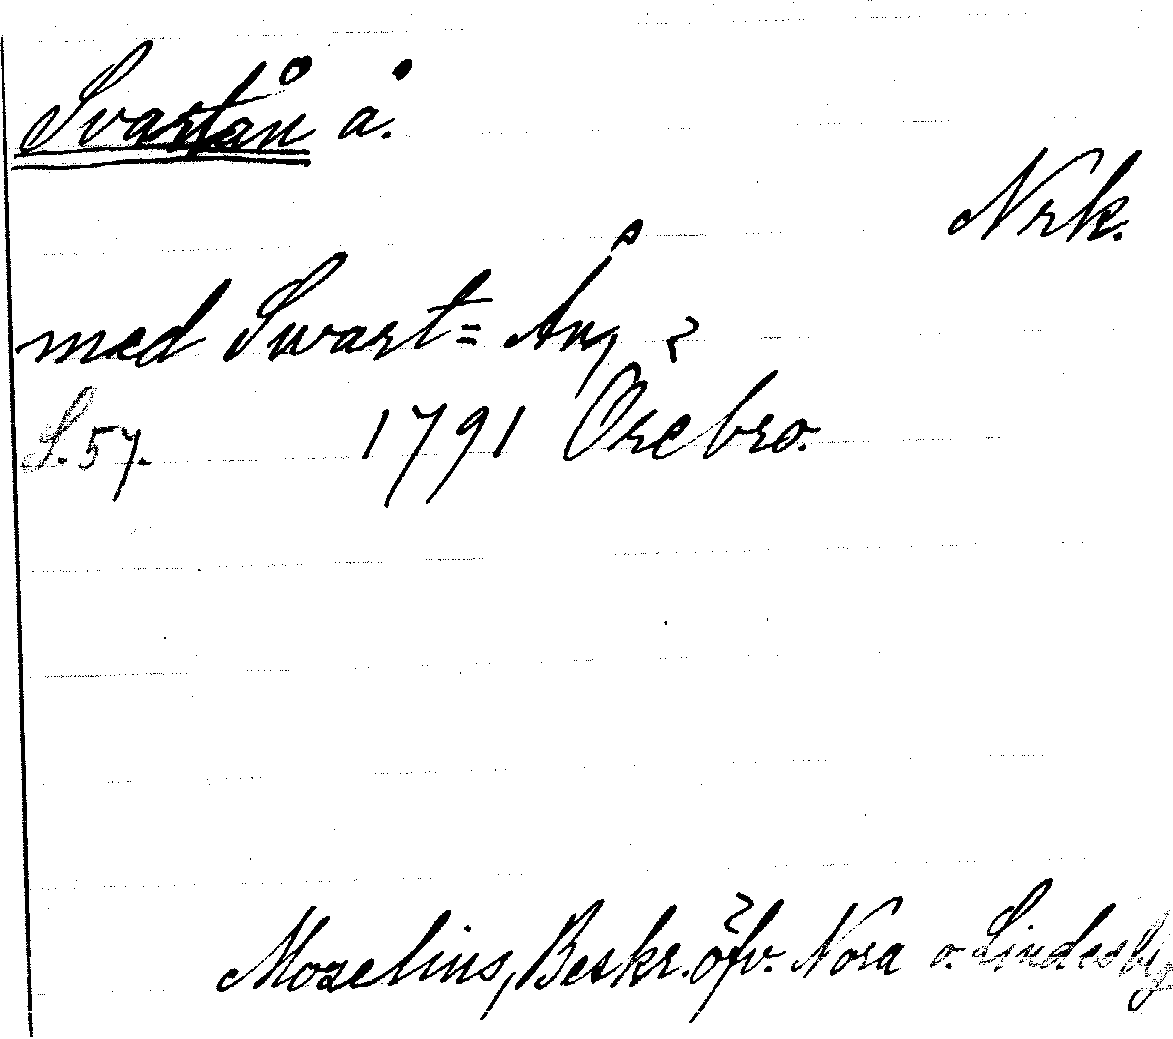 Svartån å.
Nrk.
med Swart= Ån
S. 57. 1791 Örebro.
Mozelius, Beskr. öfv. Nora o. Lindesbg